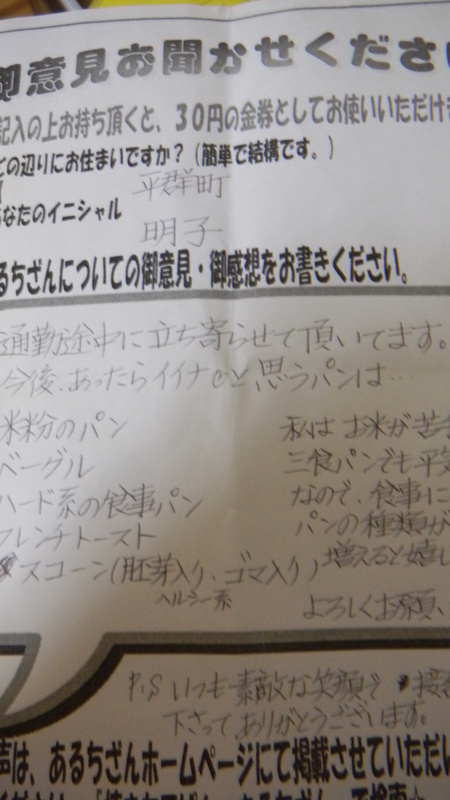 御意見お聞かせくださ
記入の上お持ち頂くと、30円の金券としてお使いいただけ
どの辺りにお住まいですか？（簡単で結構です。）
平群町
あなたのイニシャル
明子
るちざんについての御意見・御感想をお書きください。
通勤途中に立ち寄らせて頂いてます。
今後、あったらイイナと思うパンは…
米粉のパン
ベーグル
ハード系の食事パン
フレンチトースト
スコーン(胚芽入り、ゴマ入り)
ヘルシー系
私は お米が苦
三食パンでも平気
なので、食事に
パンの種類が
増えると嬉し
よろしくお願、
P.S いつも素敵な笑顔で 接
下さってありがとうございます。
声は、あるちざんホームページにて掲載させていただい